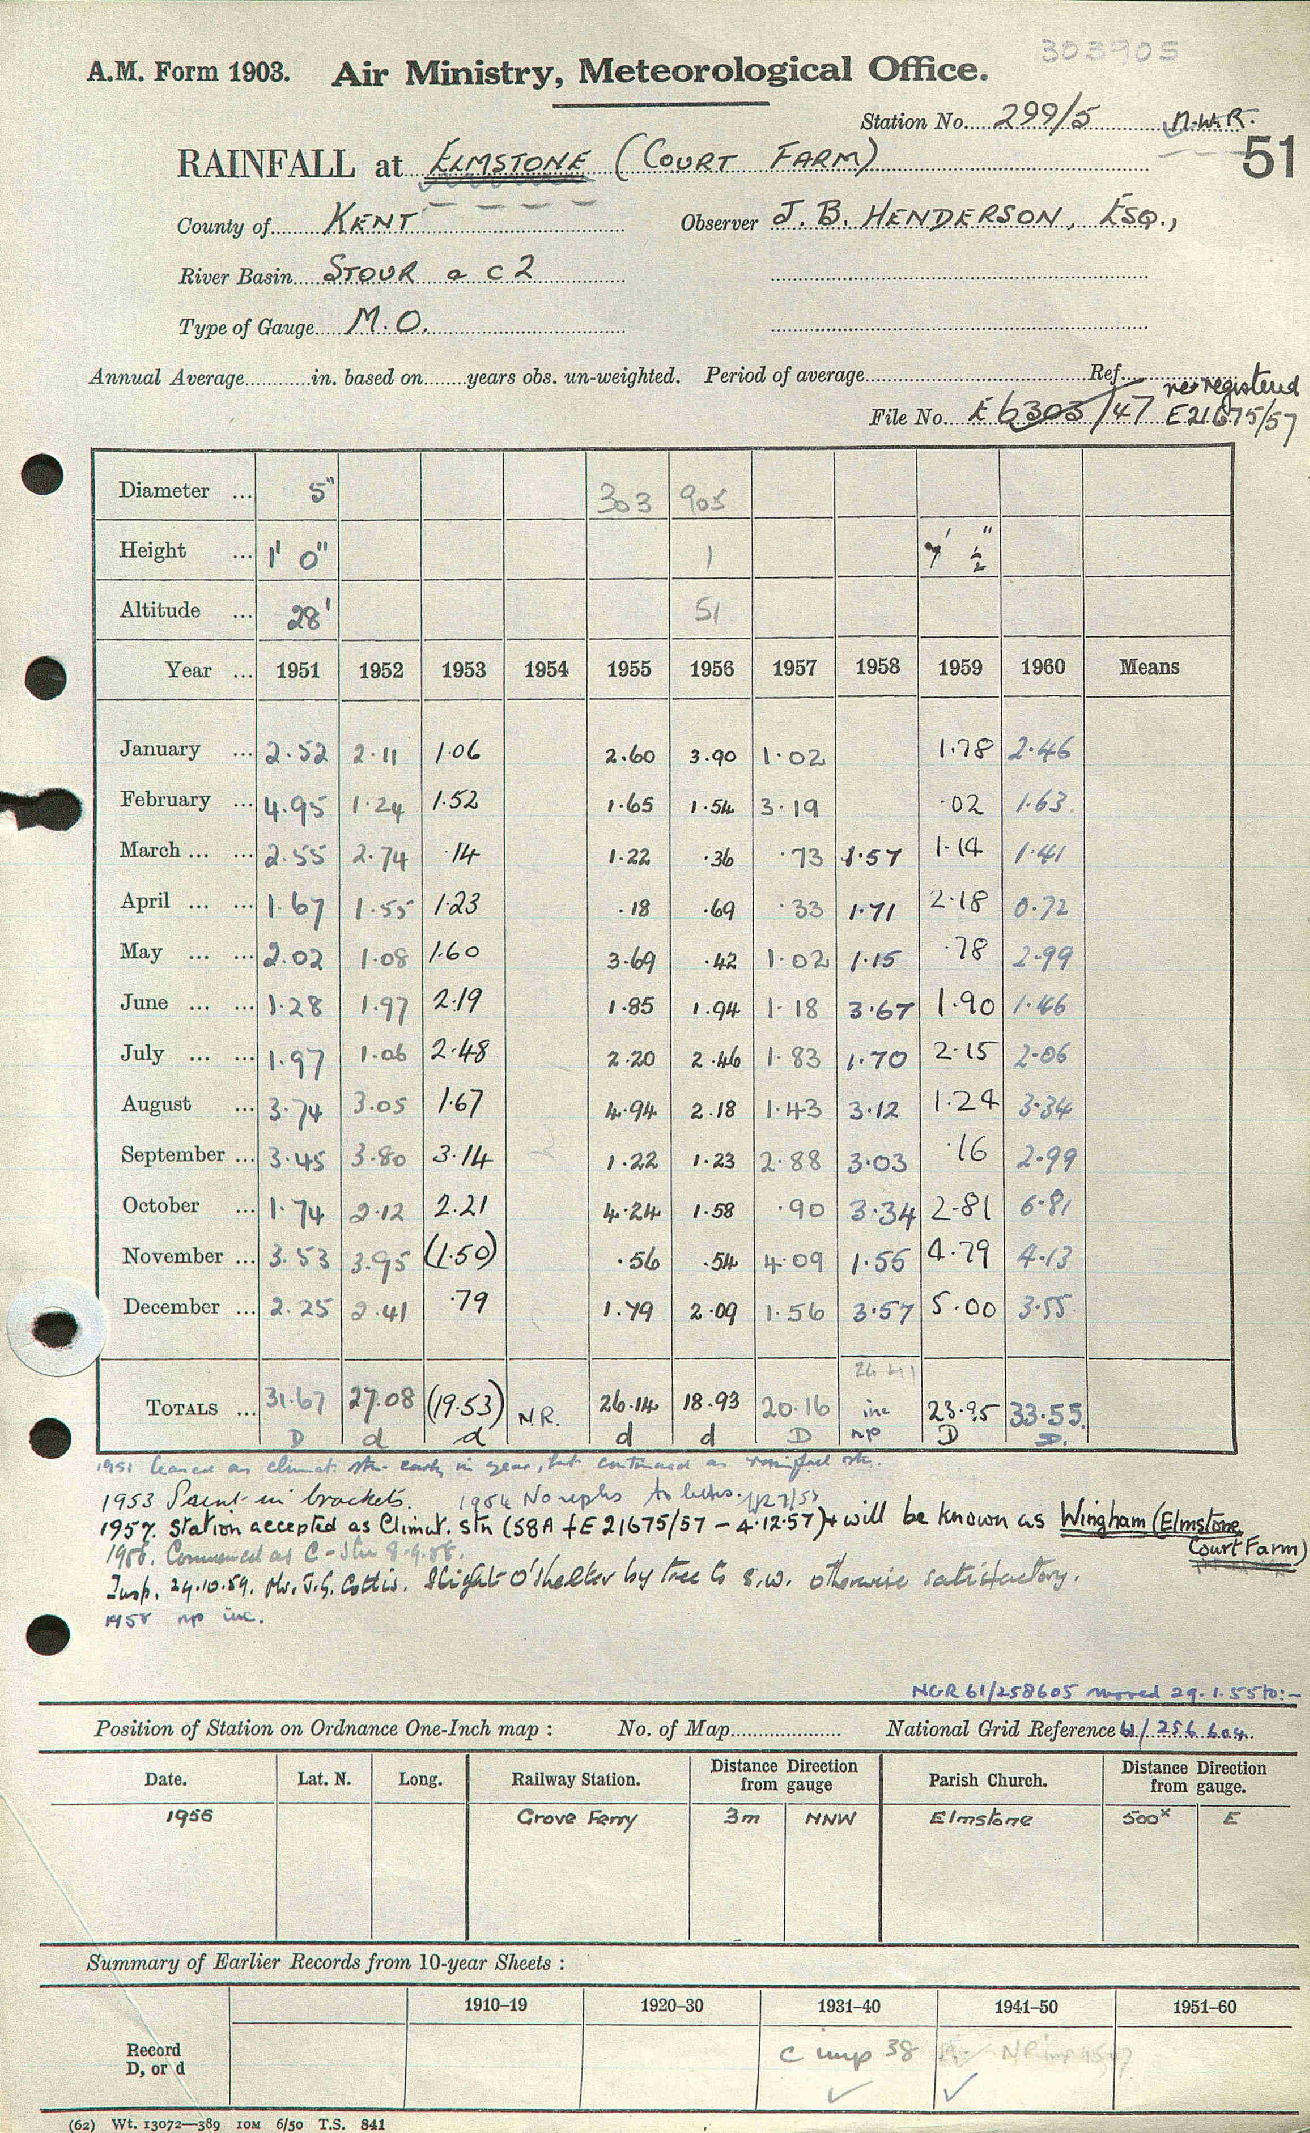 303905
A.M. Form 1903. Air Ministry, Meteorological Office.
Station No. 299/5 N.W.R.
51
RAINFALL at ELMSTONE (COURT FARM)
County of KENT Observer J. B. HENDERSON, ESQ.,
River Basin STOUR a c 2
Type of Gauge M.O.
Annual Average in. based on years obs. un-weighted. Period of average Ref.
re-registered
File No. E6303/47 E21675/57
Diameter ... 5" 303 905
Height ... 1' 0" 1 1' ½"
Altitude ... 28' 51
Year ... 1951 1952 1953 1954 1955 1956 1957 1958 1959 1960 Means
January ... 2.52 2.11 1.06 2.60 3.90 1.02 1.78 2.46
February ... 4.95 1.24 1.52 1.65 1.54 3.19 .02 1.63
March ... ... 2.55 2.74 .14 1.22 .36 .73 1.57 1.14 1.41
April ... ... 1.67 1.55 1.23 .18 .69 .33 1.71 2.18 0.72
May ... ... 2.02 1.08 1.60 3.69 .42 1.02 1.15 .78 2.99
June ... ... 1.28 1.97 2.19 1.85 1.94 1.18 3.67 1.90 1.46
July ... ... 1.97 1.06 2.48 2.20 2.46 1.83 1.70 2.15 2.06
August ... 3.74 3.05 1.67 4.94 2.18 1.43 3.12 1.24 3.34
September ... 3.45 3.80 3.14 1.22 1.23 2.88 3.03 .16 2.99
October ... 1.74 2.12 2.21 4.24 1.58 .90 3.34 2.81 6.81
November ... 3.53 3.95 (1.50) .56 .54 4.09 1.55 4.79 4.13
December ... 2.25 2.41 .79 1.79 2.09 1.56 3.57 5.00 3.55
24.41
TOTALS ... 31.67 27.08 (19.53) N.R. 26.14 18.93 20.16 inc 23.95 33.55
D d d d d D np D D.
1951 Ceased as climat. stn. early in year, but continued as rainfall stn.
1953 Paint in brackets. 1954 No reply to letters.
1957. Station accepted as Climat. Stn (58A f E 21675/57 - 4.12.57) & will be known as Wingham (Elmstone
Court Farm)
Commenced as C-Stn
Insp. 29.10.59. Mr. J.G. Cottis. Slight O'shelter by tree to S.W. otherwise satisfactory.
1958 np inc.
NGR 61/258605 moved 29.1.55 to:-
Position of Station on Ordnance One-Inch map : No. of Map National Grid Reference 61/256604
Date. Lat. N. Long. Railway Station. Distance from gauge Direction Parish Church. Distance from gauge. Direction
1956 Grove Ferry 3m NNW Elmstone 500x E
Summary of Earlier Records from 10-year Sheets :
1910–19 1920–30 1931–40 1941–50 1951–60
Record D, or d C imp 38
(62) Wt. 13072—389 10M 6/50 T.S. 841